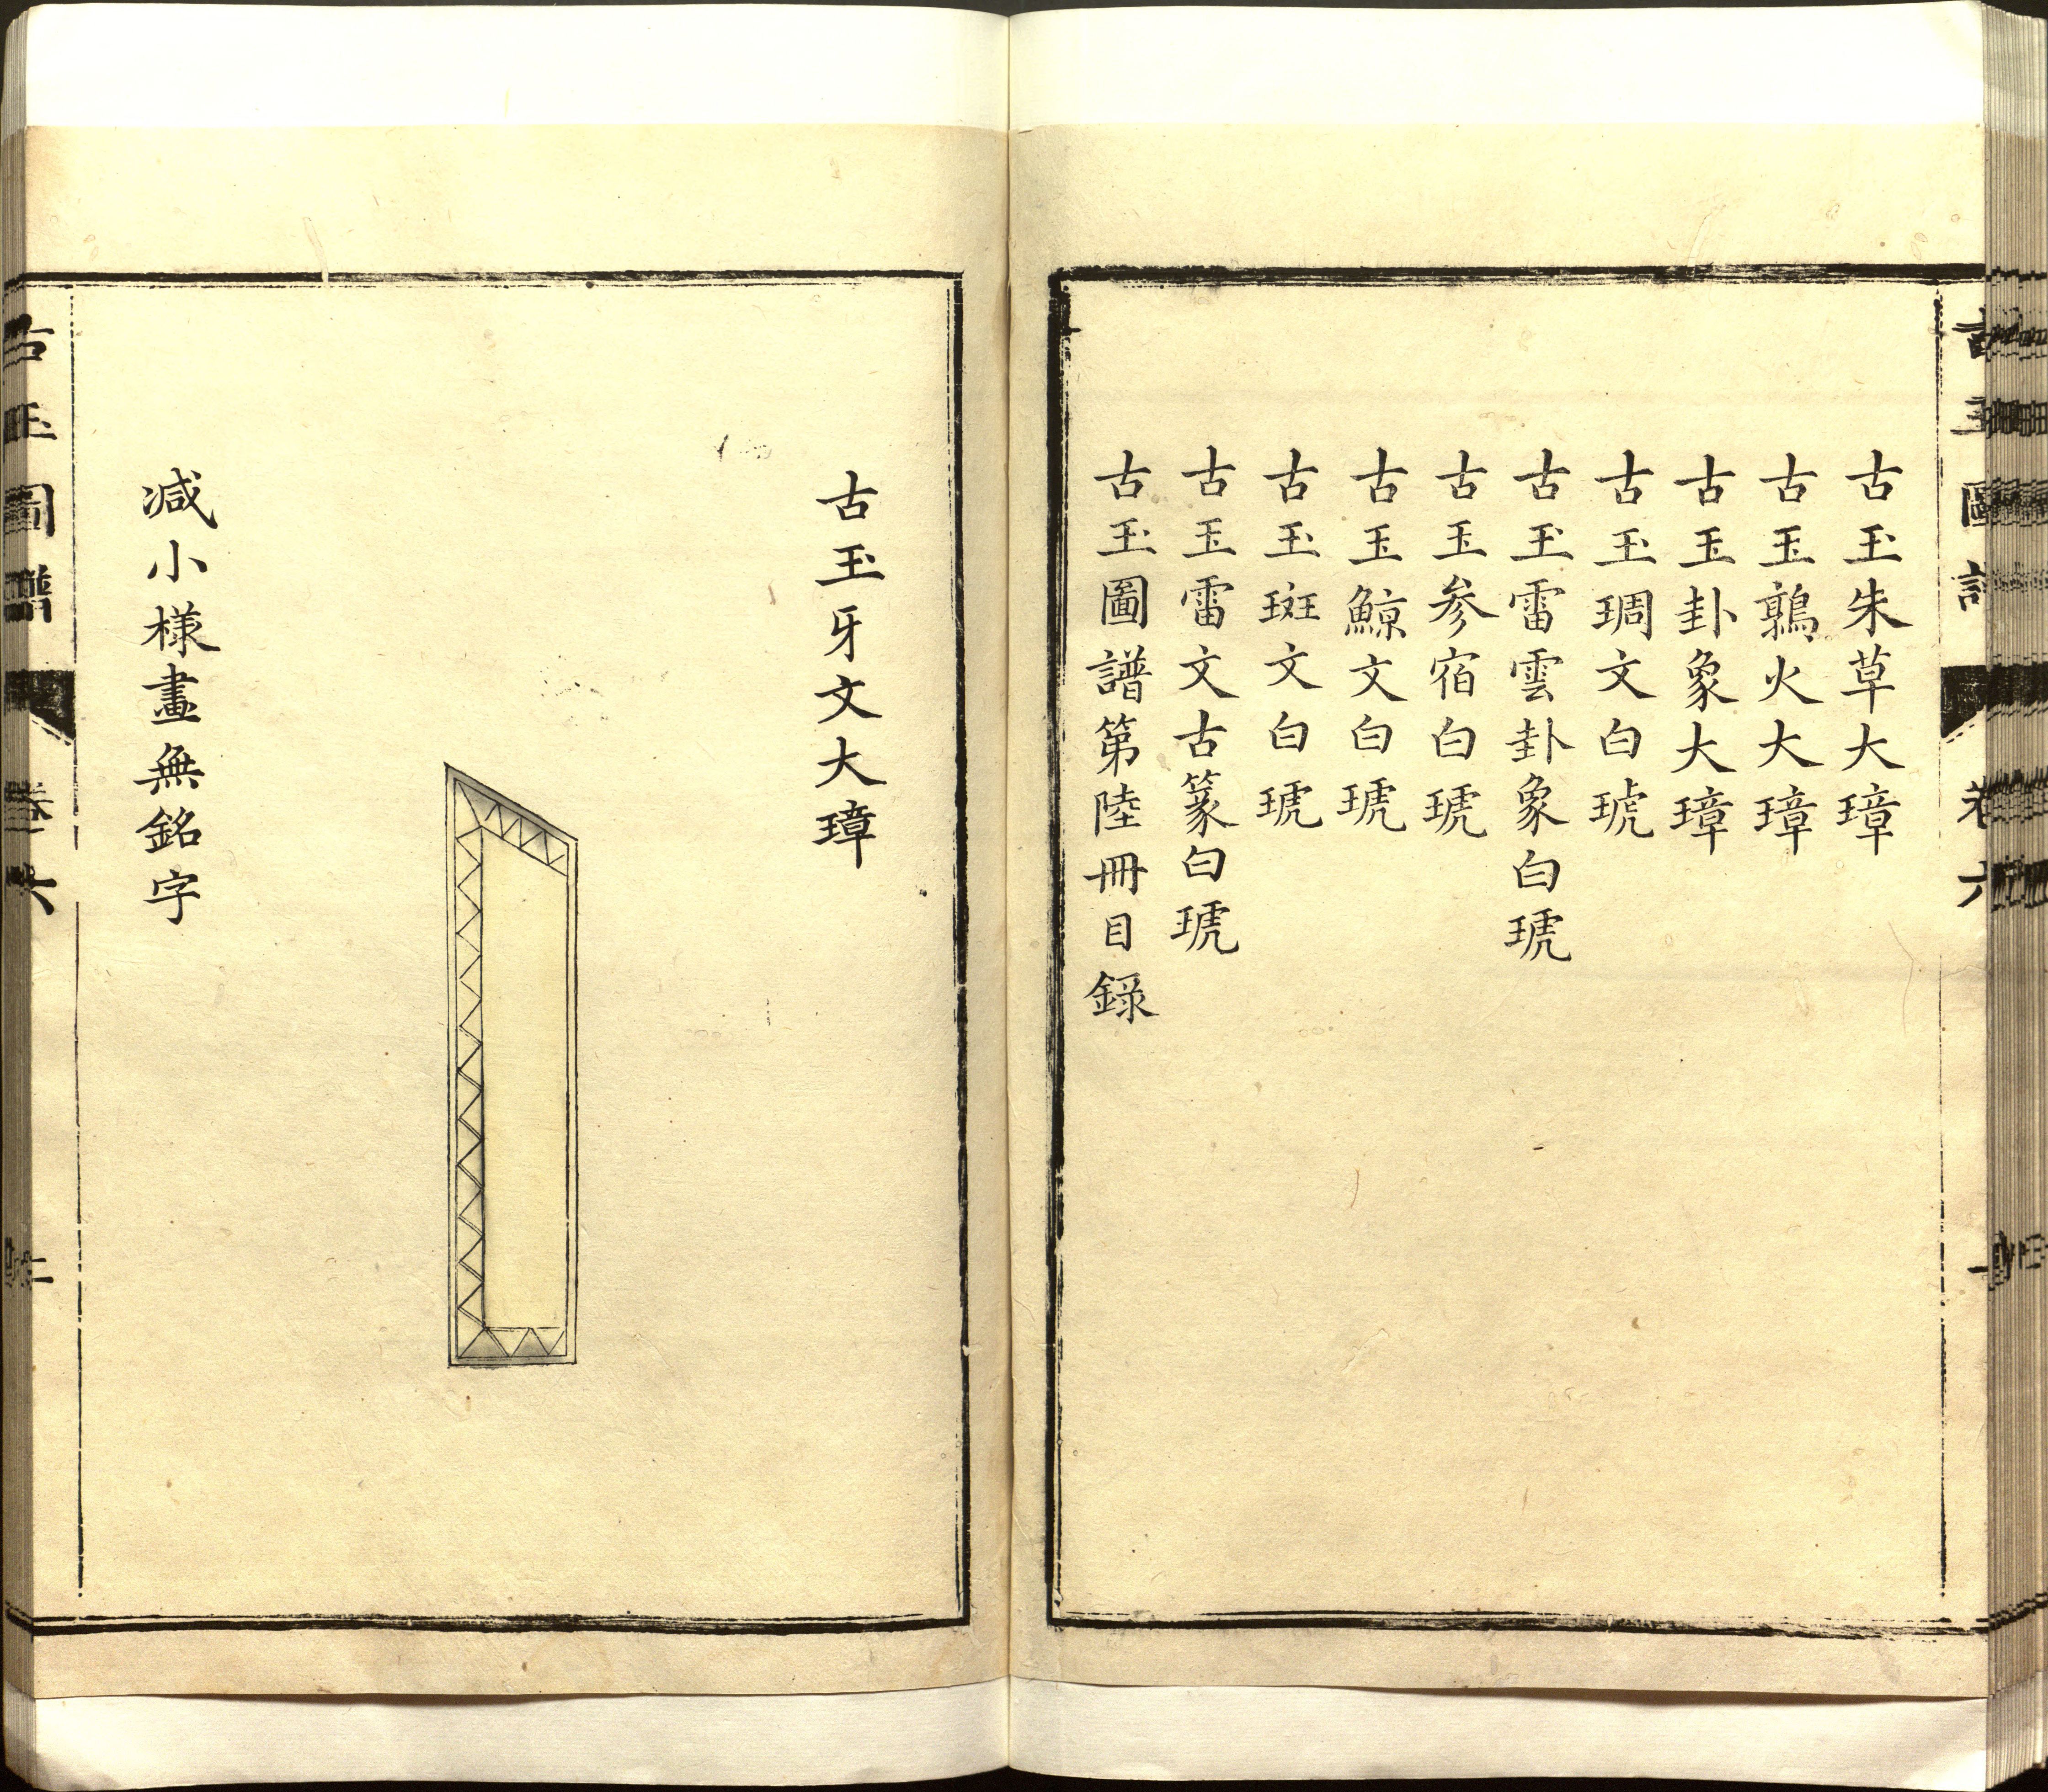 古玉朱草大璋
古玉鶉火大璋
古玉卦象大璋
古玉琱文白琥
古玉雷雲卦象白琥
古玉参宿白琥
古玉鯨文白琥
古玉斑文白琥
古玉雷文古篆白琥
古玉圖譜第陸冊目錄
古玉牙文大璋
減小樣畫無銘字
古玉圖譜
卷六